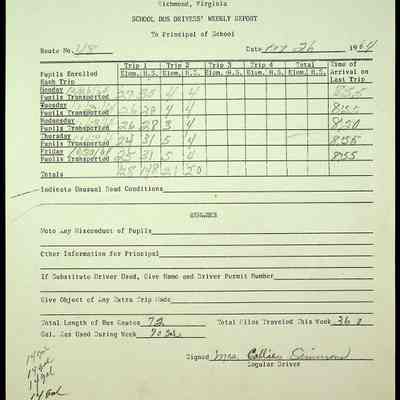 Richmond, Virginia
SCHOOL BUS DRIVERS' WEEKLY REPORT
To Principal of School
Route No. Date 26 1964
Trip 1 Trip 2 Trip 3 Trip 4 Total Time of
Pupils Enrolled Elem. H.S. Elem. H.S. Elem. H.S. Elem. H.S. Elem. H.S. Arrival on
Each Trip Last Trip
Monday
Pupils Transported 27 30 4 4 8:55
Tuesday
Pupils Transported 26 28 4 4 8:55
Wednesday
Pupils Transported 26 28 3 4 8:50
Thursday
Pupils Transported 24 31 5 4 8:55
Friday
Pupils Transported 25 31 5 4 8:55
Totals 148 21 20
Indicate Unusual Road Conditions
REMARKS
Note Any Misconduct of Pupils
Other Information for Principal
If Substitute Driver Used, Give Name and Driver Permit Number
Give Object of Any Extra Trip Made
Total Length of Bus Routes 72 Total Miles Traveled This Week 360
Gal. Gas Used During Week 70 gal.
14 gal
14 gal
14 gal
14 gal
Signed Mrs.
Regular Driver